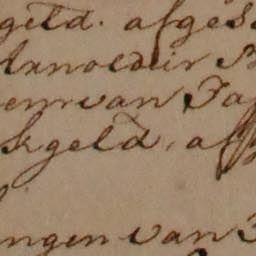 geld. afges
Arnoldus
en van Ja
kgeld, af
ngen van